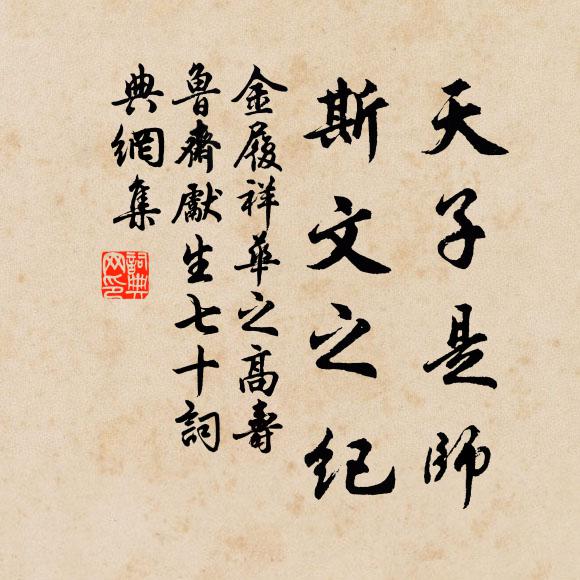 天子是師
斯文之纪
金履祥華之高壽
魯齋獻生七十詞
典網集
詞典
网印